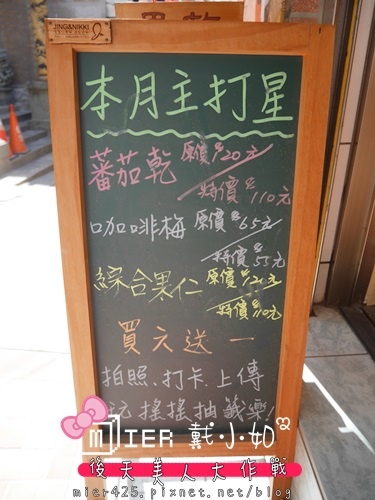 JING&NIKKI
本月主打星
蕃茄乾 原價$120元
特價$110元
咖啡梅 原價$65元
特價$55元
綜合果仁 原價$120元
特價$110元
買六送一
拍照.打卡.上傳
玩搖搖抽籤樂!
MIER 戴小如
後天美人大作戰
mier425.pixnet.net/blog